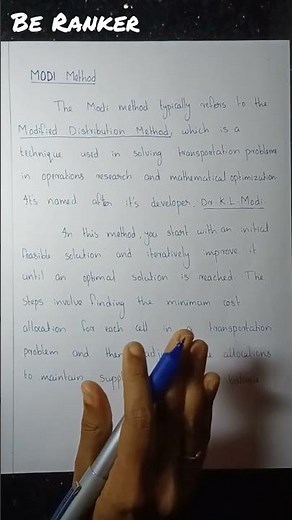 BE RANKER
MODI Method
The Modi method typically refers to the
Modified Distribution Method, which is a
technique used in solving transportation problem
in operations research and mathematical optimization
It's named after it's developer, Dr. K.L Modi.
In this method, you start with an initial
feasible solution and iteratively improve it
until an optimal solution is reached The
steps involve finding the minimum cost
allocation for each cell in a transportation
problem and then allocations
to maintain supp